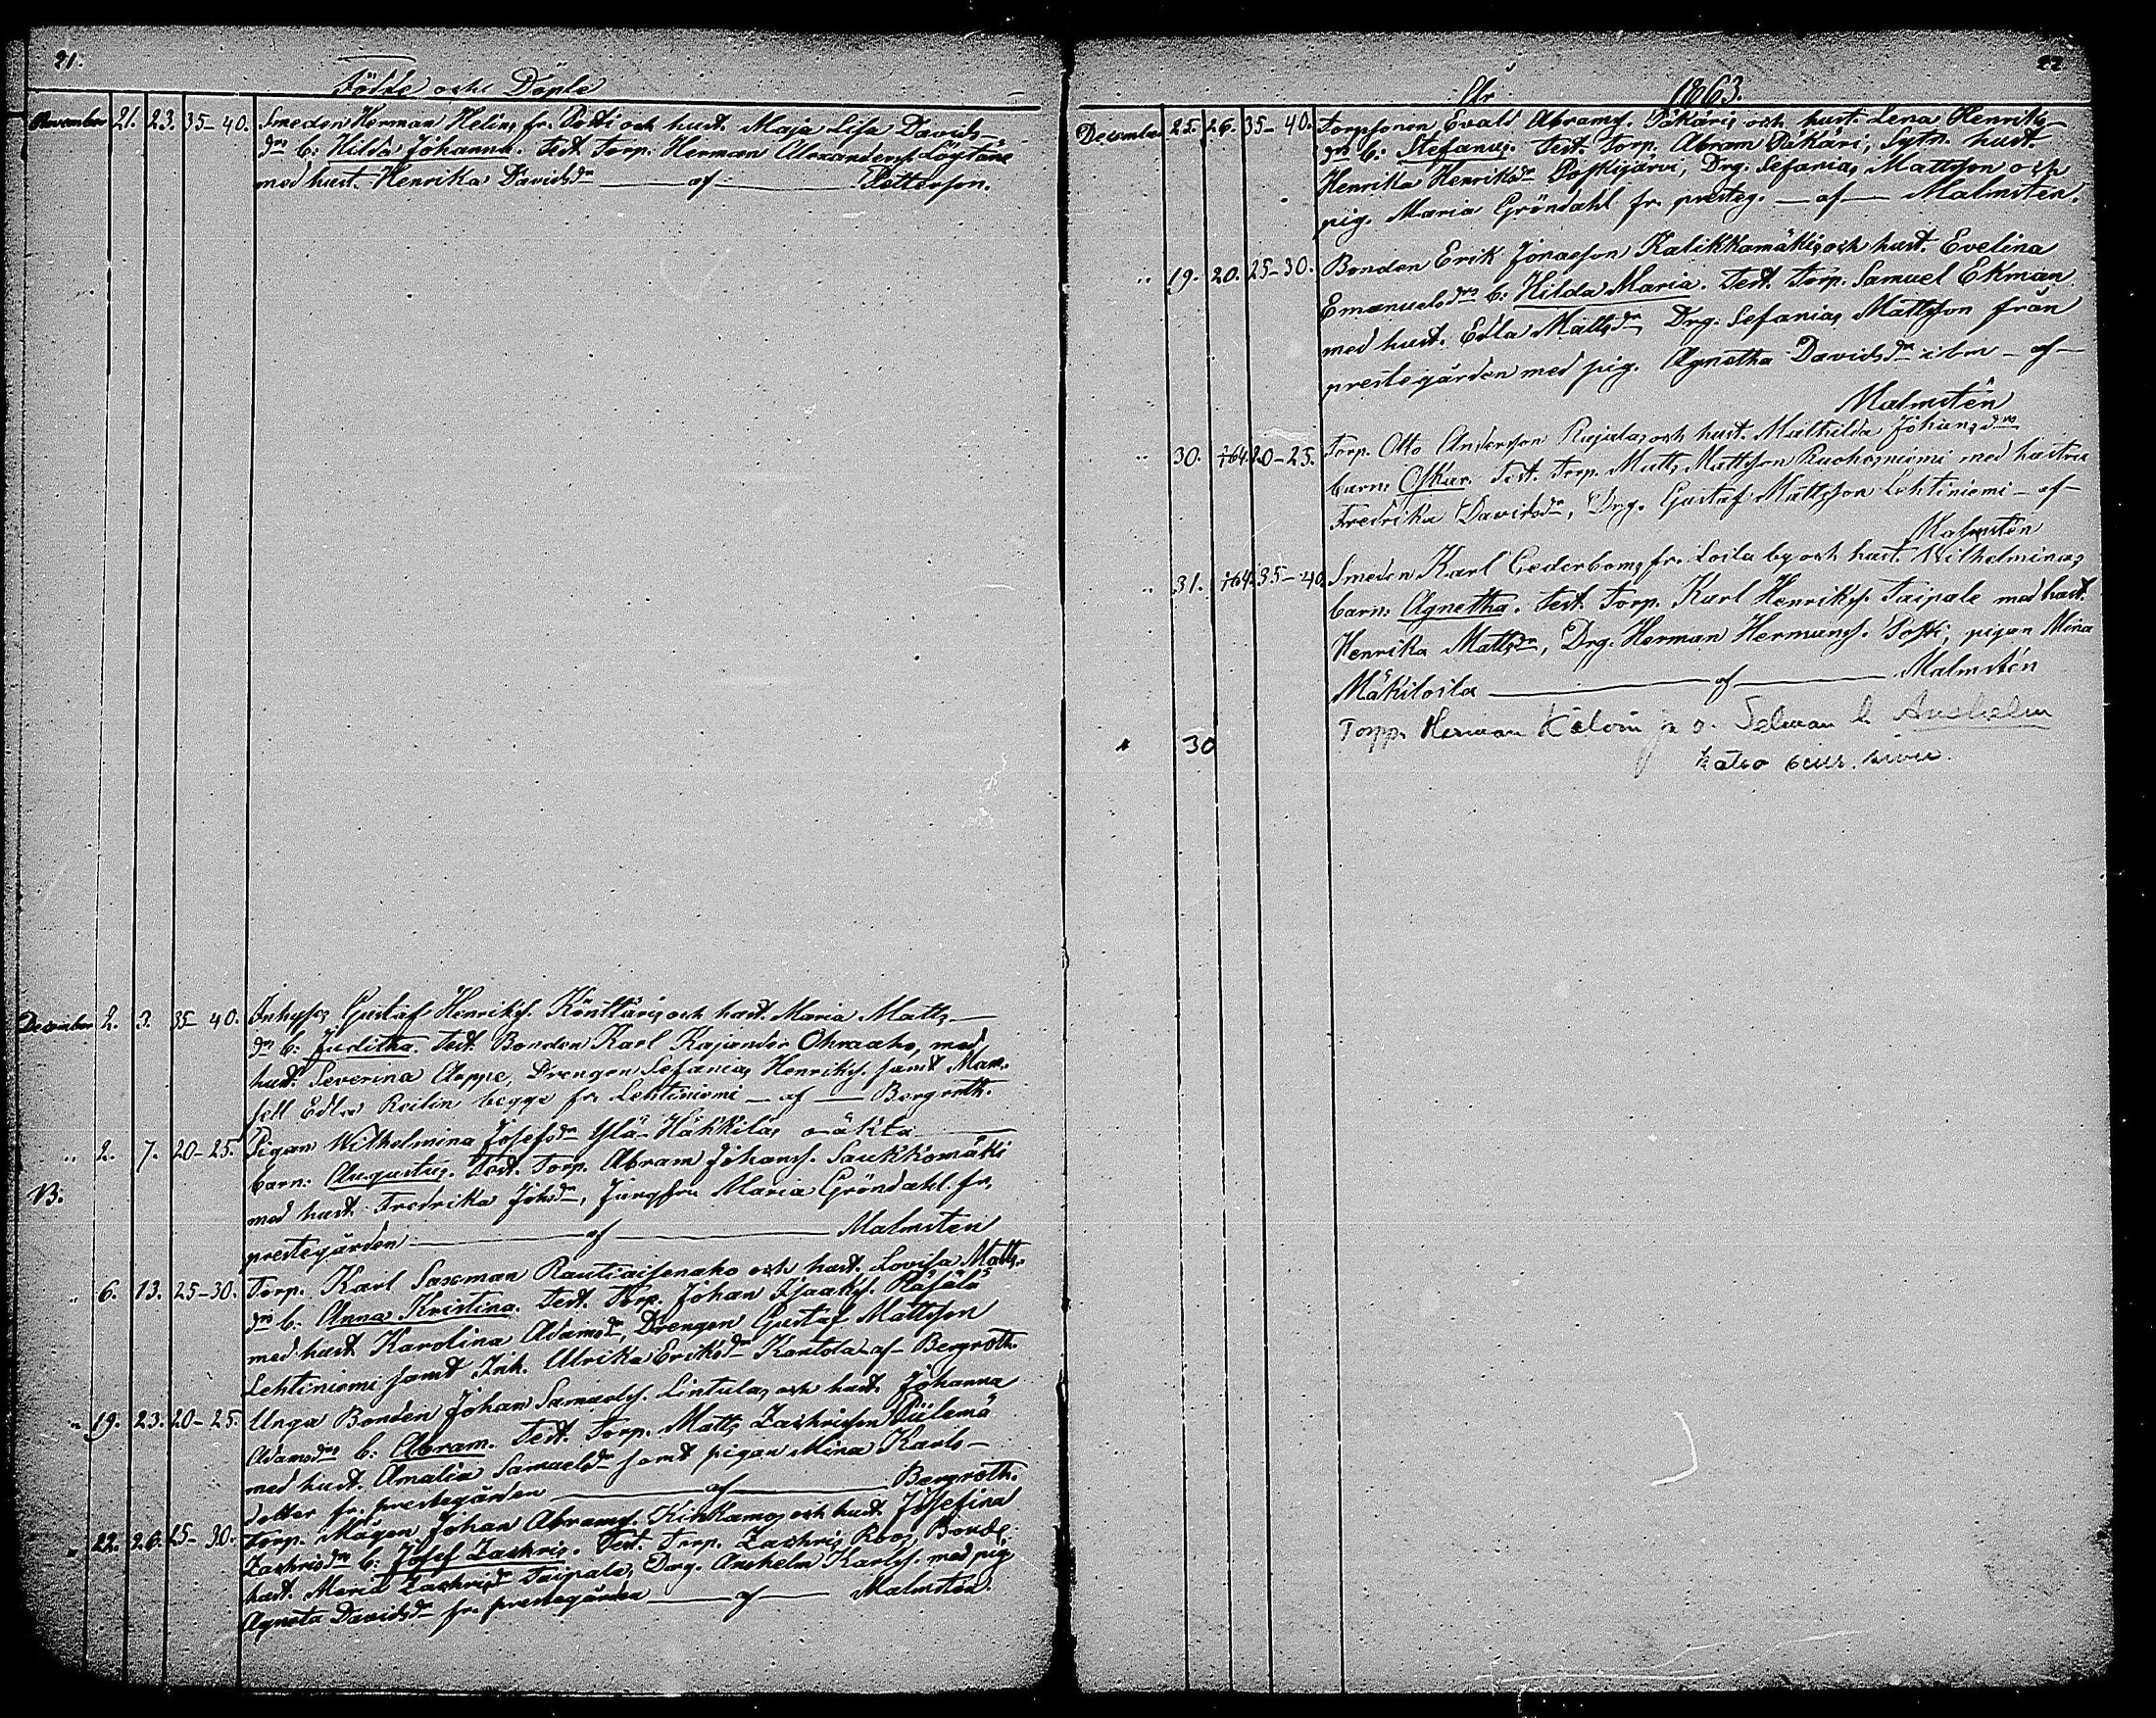 21.
Födde och Döpte
November 21. 23. 35-40. Smeden Herman Helins fr. Posti och hust. Maja Lisa Davids-
drs b: Hilda Johanna. Test. Torp. Herman Alexanders. Löytäne
med hust. Henrika Davidsdr — af — Petterson.
December 2. 3. 35-40. Inhyses Gustaf Henriks. Könttäris och hust. Maria Matts-
drs b: Juditha. Test. Bonden Karl Kajander Ohraaho, med
hust. Severina Aeppe, Drengen Sefanias Henriks. samt Mam-
sell Edla Reilin begge fr. Lehtiniemi — af — Bergroth.
" 2. 7. 20-25. Pigan Wilhelmina Josefsdr Ylä-Häkkilas oäkta
barn: Augustus. Test. Torp. Abram Johans. Saukkomäki
NB.
med hust. Fredrika Johsdr, Jungfru Maria Gröndahl fr.
prestegården — af — Malmstén
" 6. 13. 25-30. Torp. Karl Saxman Rautiaisenaho och hust. Lovisa Matts-
drs b: Anna Kristina. Test. Torp. Johan Isaaks. Räsälä
med hust. Karolina Adamsdr, Drengen Gustaf Mattsson
Lehtiniemi samt Inh. Ulrika Eriksdr Kantola - af - Bergroth.
" 19. 23. 20-25. Unga Bonden Johan Samuels. Lintulas och hust. Johanna
Adamsdrs b: Abram. Test. Torp. Matts Zachrisson Piilemä
med hust. Amalia Samuelsdr samt pigan Mina Karls-
dotter fr. prestegården — af — Bergroth.
" 22. 26. 25-30. Torp. Mågen Johan Abrams. Kinkamos och hust. Josefina
Zachrisdrs b: Josef Zachris. Test. Torp. Zachris Roos, Bonde
hust. Maria Zachrisdr Taipale, Drg. Anshelm Karlss. med pig.
Agneta Davidsdr fr. prestegården — af — Malmstén.
22
År 1863.
December 25. 26. 35-40. Torpsonen Evald Abrams. Päkäris och hust. Lena Henriks-
drs b: Stefanus. Test. Torp. Abram Päkäri, Sytn. hust.
Henrika Henriksdr Poskijärvi, Drg. Sefanias Mattsson och
pig. Maria Gröndahl fr. presteg. — af — Malmstén.
" 19. 20. 25-30. Bonden Erik Jonasson Kalikkamäkis och hust. Evelina
Emanuelsdrs b: Hilda Maria. Test. Torp. Samuel Ekman
med hust. Edla Mattsdr, Drg. Sefanias Mattsson från
prestegården med pig. Agnetha Davidsdr ibm - af -
Malmstén
" 30. 1/1 64. 20-25. Torp. Otto Andersson Rajalas och hust. Mathilda Johansdrs
barn: Oskar. Test. Torp. Matts Mattsson Ruohoniemi med hustru
Fredrika Davidsdr, Drg. Gustaf Mattsson Lehtiniemi - af -
Malmstén
" 31. 1/1 64. 35-40. Smeden Karl Cederboms fr. Soila by och hust. Wilhelminas
barn: Agnetha. Test. Torp. Karl Henriks. Taipale med hust.
Henrika Mattsdr, Drg. Herman Hermans. Posti, pigan Mina
Mäkiloila — af — Malmstén
" 30 Torpp. Herman Kalvin ja v. Selman l. Anshelm
katso seur. sivu.